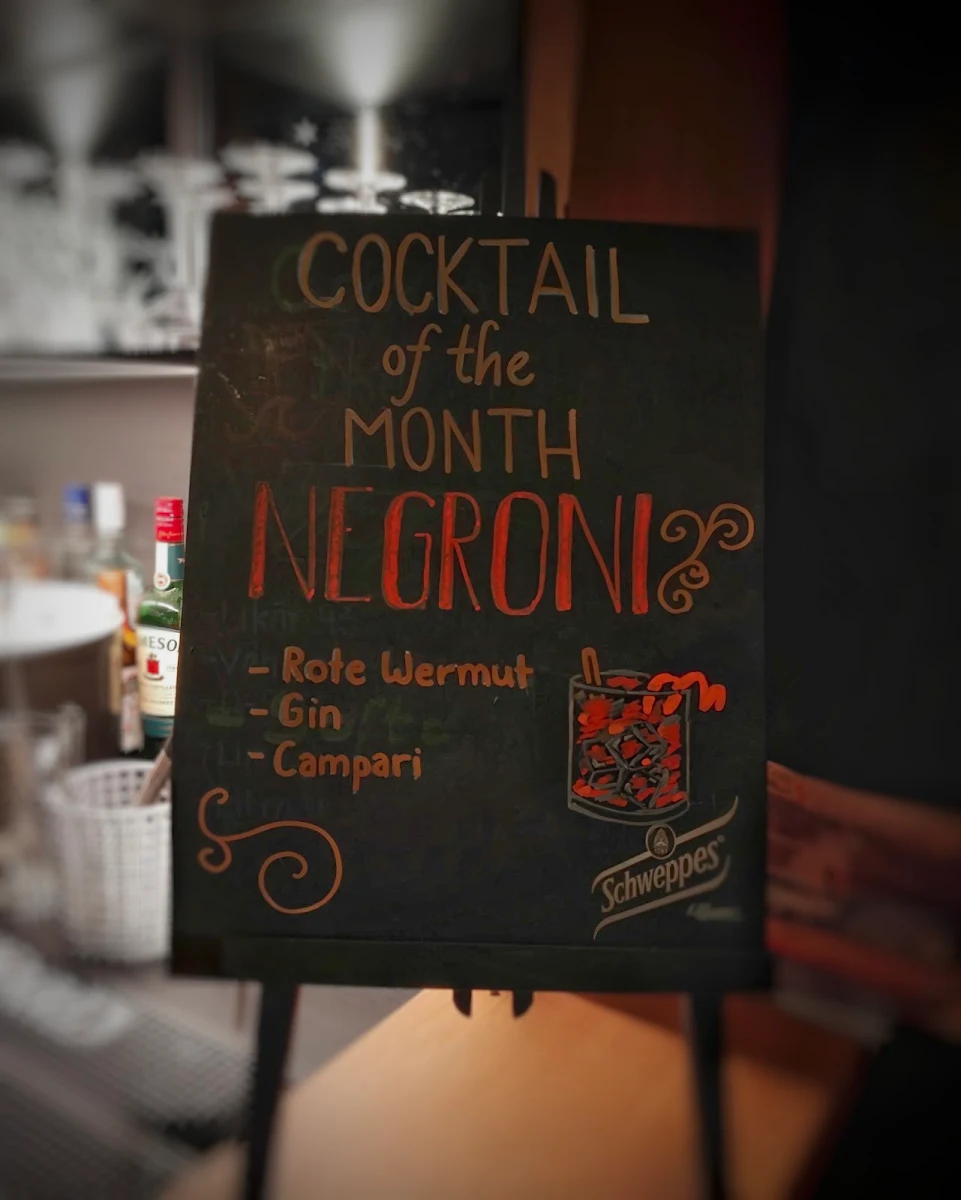 COCKTAIL
of the
MONTH
NEGRONI
- Rote Wermut
- Gin
- Campari
Schweppes